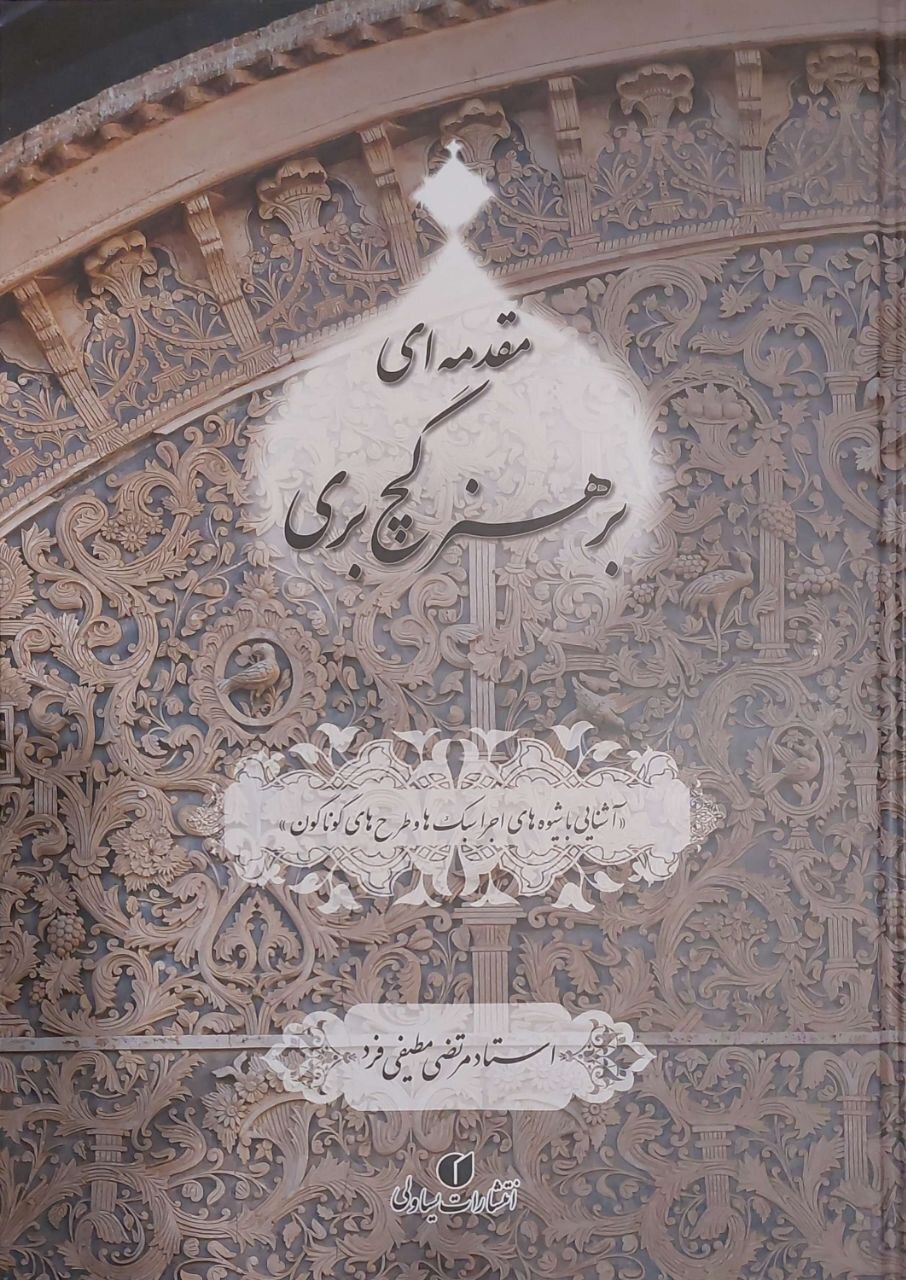 مقدمه ای
بر هنر گچ بری
«آشنایی با شیوه های اجرا سبک ها و طرح های گوناگون»
استاد مرتضی مطیفی فرد
انتشارات یساولی